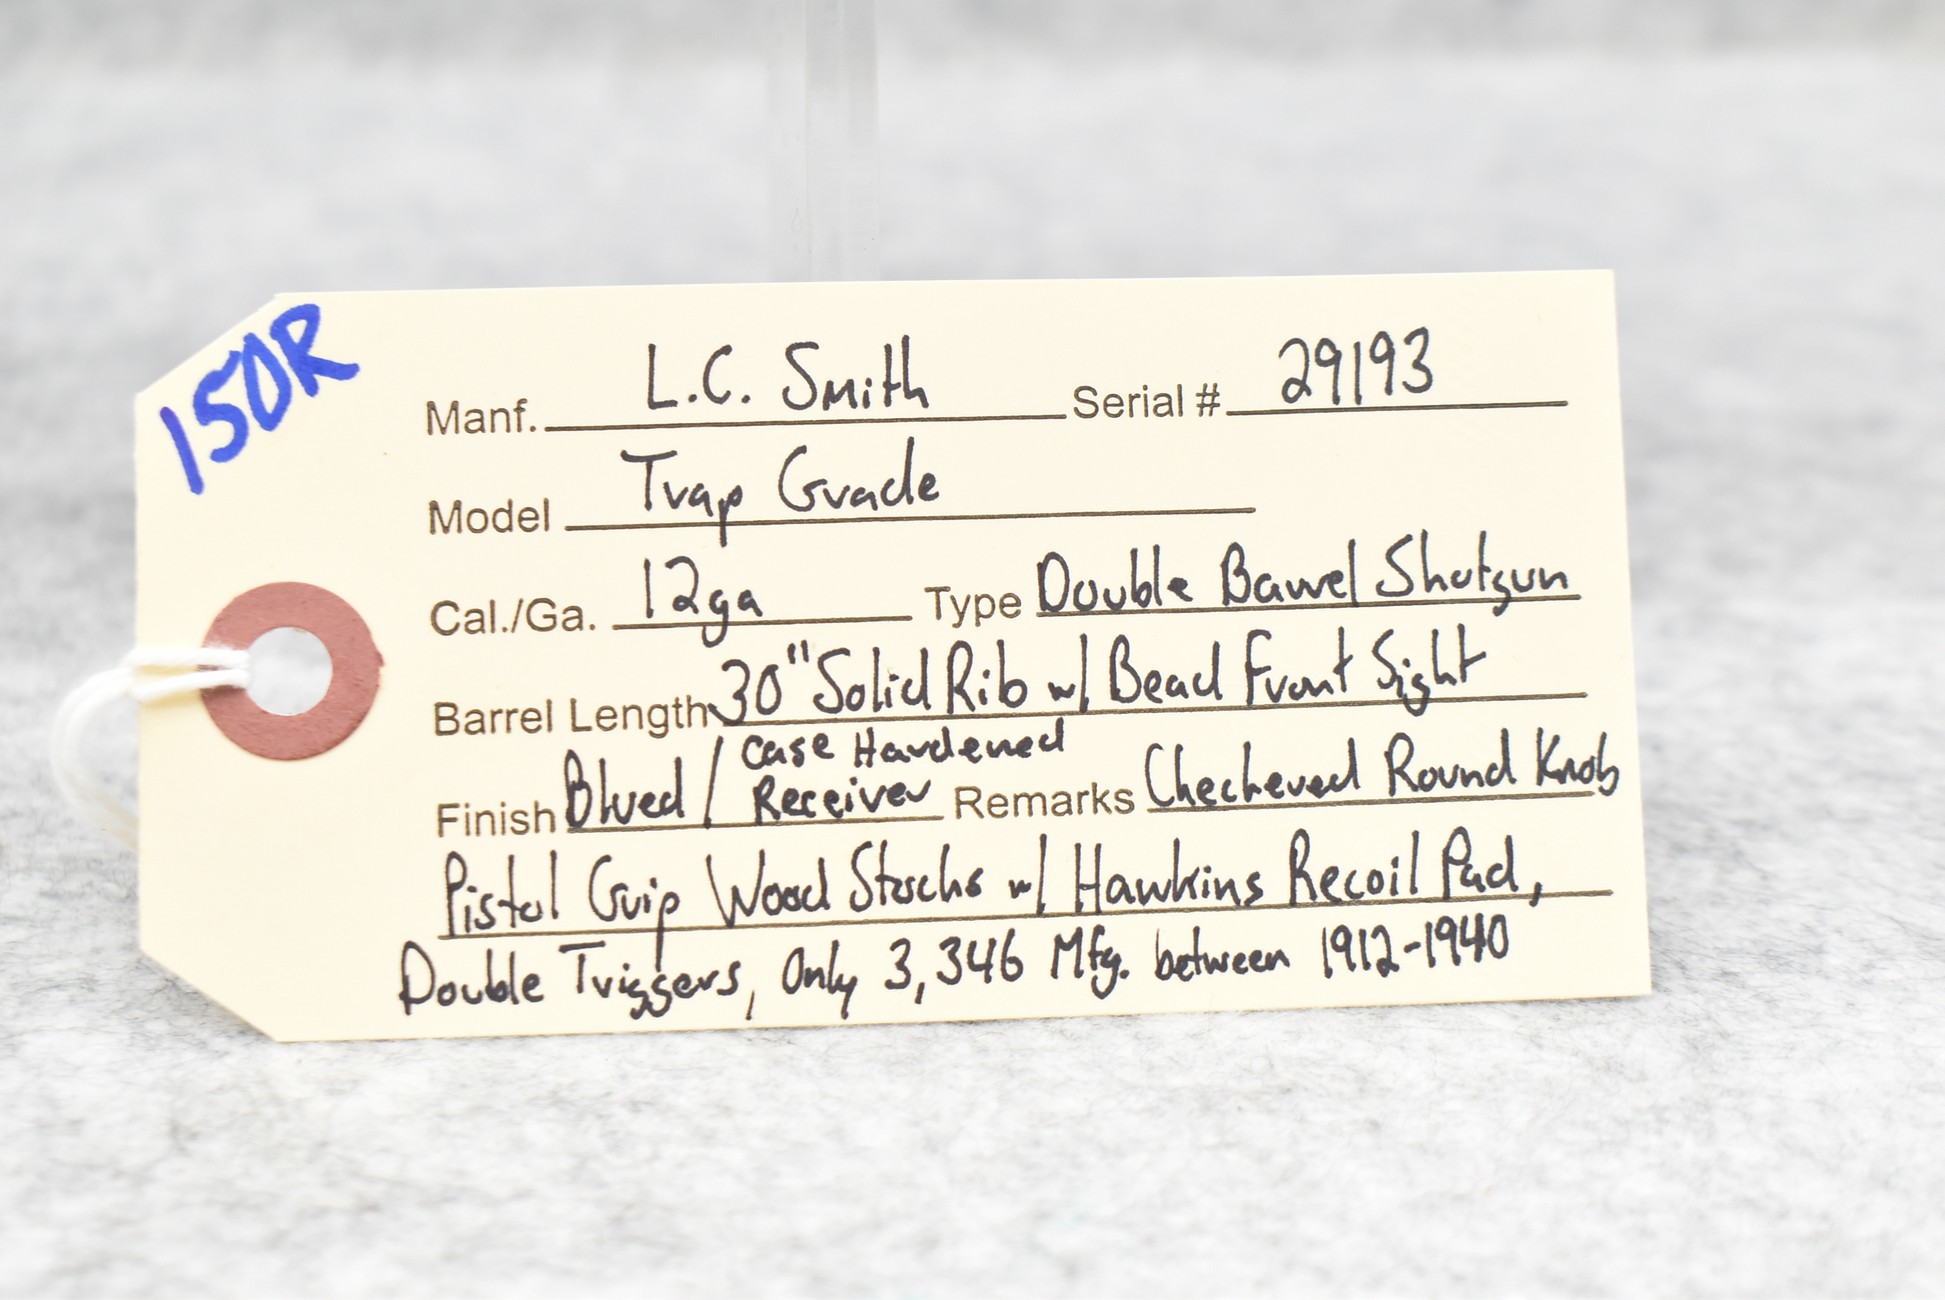 150R
Manf. L.C. Smith Serial # 29193
Model Trap Grade
Cal./Ga. 12ga Type Double Barrel Shotgun
Barrel Length 30" Solid Rib w/ Bead Front Sight
Finish Blued / Case Hardened Receiver Remarks Checkered Round Knob
Pistol Grip Wood Stocks w/ Hawkins Recoil Pad,
Double Triggers, Only 3,346 Mfg. between 1912-1940